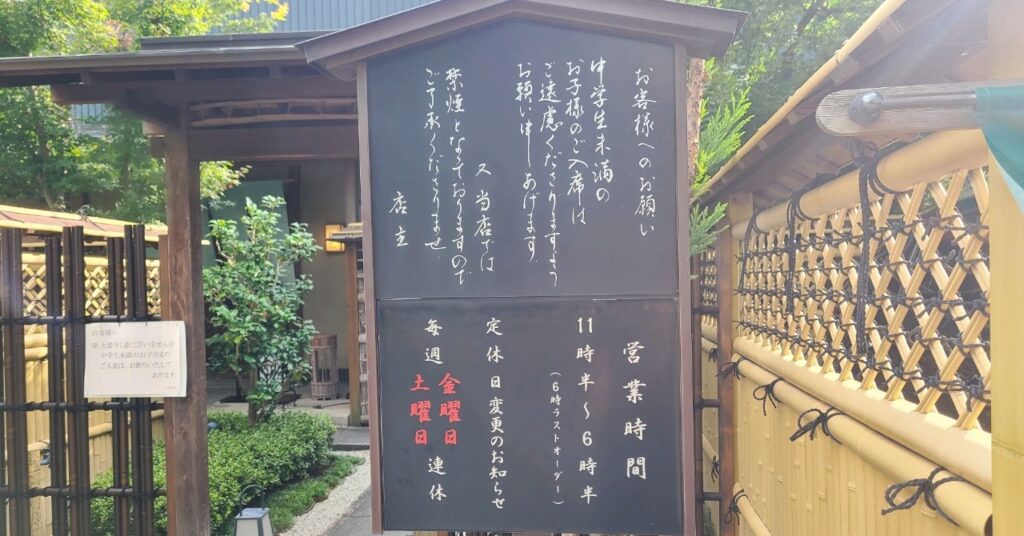 お客様へのお願い
中学生未満の
お子様のご入席は
ご遠慮くださりますよう
お願い申しあげます。
又当店では
禁煙となっておりますので
ご了承くださりませ。
店主
営業時間
11時半〜6時半
(6時ラストオーダー)
定休日変更のお知らせ
毎週 金曜日 土曜日 連休
お客様へ
※大変申し訳ございませんが
中学生未満のお子さまの
ご入店は、お断りいたして
おります